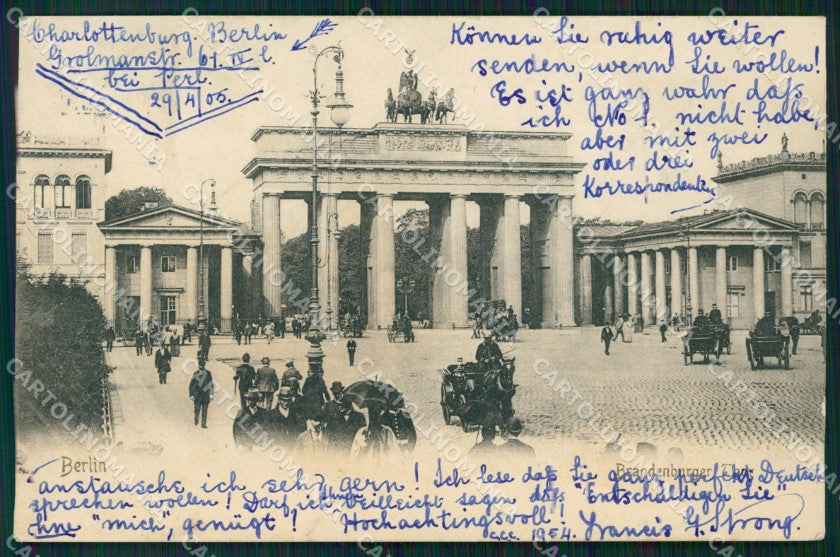 Charlottenburg. Berlin
Grolmanstr. 61. IV l.
bei Perl.
29/4/05.
Können Sie ruhig weiter
senden, wenn Sie wollen!
Es ist ganz wahr daſs
ich No 1. nicht habe,
aber mit zwei
oder drei
Korrespondenten
Berlin
Brandenburger Thor
anstausche ich sehr gern! Ich lese daſs Sie ganz perfekt Deutsch
sprechen wollen! Darf ich Ihnen veilleicht sagen daſs "Entschäldigen Sie"
ohne "mich", genügt! Hochachtingsvoll!
Francis G. Strong.
1954.
CARTOLINOMANIA.COM